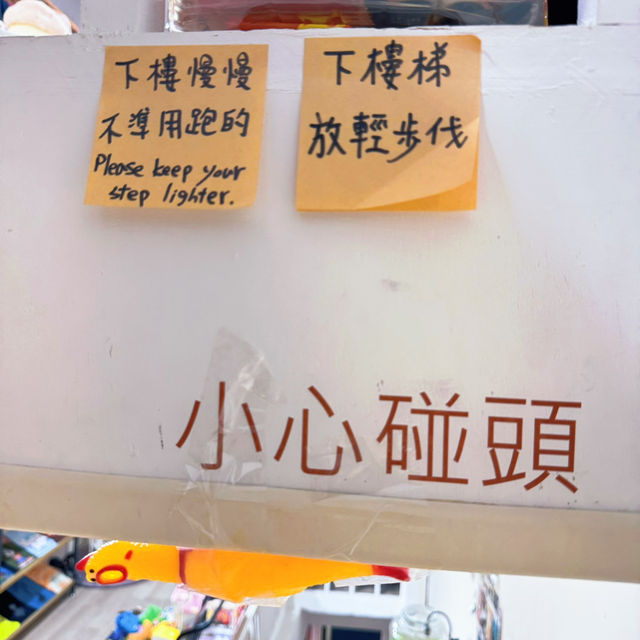 下樓慢慢
不準用跑的
Please keep your
step lighter.
下樓梯
放輕步伐
小心碰頭